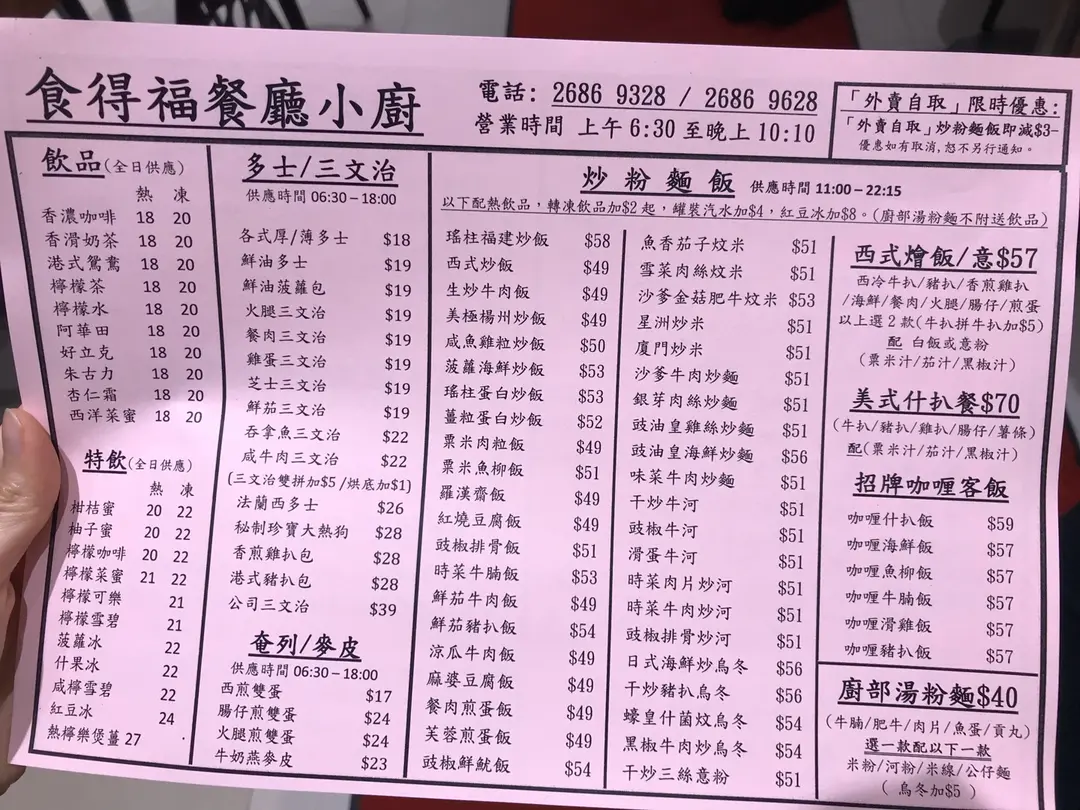 食得福餐廳小廚
電話: 2686 9328 / 2686 9628
營業時間 上午 6:30 至晚上 10:10
「外賣自取」限時優惠:
「外賣自取」炒粉麵飯即減$3-
優惠如有取消,恕不另行通知。
飲品(全日供應)
熱 凍
香濃咖啡 18 20
香滑奶茶 18 20
港式鴛鴦 18 20
檸檬茶 18 20
檸檬水 18 20
阿華田 18 20
好立克 18 20
朱古力 18 20
杏仁霜 18 20
西洋菜蜜 18 20
特飲(全日供應)
熱 凍
柑桔蜜 20 22
柚子蜜 20 22
檸檬咖啡 20 22
檸檬菜蜜 21 22
檸檬可樂 21
檸檬雪碧 21
菠蘿冰 22
什果冰 22
咸檸雪碧 22
紅豆冰 24
熱檸樂煲薑 27
多士/三文治
供應時間 06:30 – 18:00
各式厚/薄多士 $18
鮮油多士 $19
鮮油菠蘿包 $19
火腿三文治 $19
餐肉三文治 $19
雞蛋三文治 $19
芝士三文治 $19
鮮茄三文治 $19
吞拿魚三文治 $22
咸牛肉三文治 $22
(三文治雙拼加$5 /烘底加$1)
法蘭西多士 $26
秘制珍寶大熱狗 $28
香煎雞扒包 $28
港式豬扒包 $28
公司三文治 $39
奄列/麥皮
供應時間 06:30 – 18:00
西煎雙蛋 $17
腸仔煎雙蛋 $24
火腿煎雙蛋 $24
牛奶燕麥皮 $23
炒粉麵飯 供應時間 11:00 – 22:15
以下配熱飲品,轉凍飲品加$2 起,罐裝汽水加$4,紅豆冰加$8。(廚部湯粉麵不附送飲品)
瑤柱福建炒飯 $58
西式炒飯 $49
生炒牛肉飯 $49
美極楊州炒飯 $49
咸魚雞粒炒飯 $50
菠蘿海鮮炒飯 $53
瑤柱蛋白炒飯 $53
薑粒蛋白炒飯 $52
粟米肉粒飯 $49
粟米魚柳飯 $51
羅漢齋飯 $49
紅燒豆腐飯 $49
豉椒排骨飯 $51
時菜牛腩飯 $53
鮮茄牛肉飯 $49
鮮茄豬扒飯 $54
涼瓜牛肉飯 $49
麻婆豆腐飯 $49
餐肉煎蛋飯 $49
芙蓉煎蛋飯 $49
豉椒鮮魷飯 $54
魚香茄子炆米 $51
雪菜肉絲炆米 $51
沙爹金菇肥牛炆米 $53
星洲炒米 $51
廈門炒米 $51
沙爹牛肉炒麵 $51
銀芽肉絲炒麵 $51
豉油皇雞絲炒麵 $51
豉油皇海鮮炒麵 $56
味菜牛肉炒麵 $51
干炒牛河 $51
豉椒牛河 $51
滑蛋牛河 $51
時菜肉片炒河 $51
時菜牛肉炒河 $51
豉椒排骨炒河 $51
日式海鮮炒烏冬 $56
干炒豬扒烏冬 $56
蠔皇什菌炆烏冬 $54
黑椒牛肉炒烏冬 $54
干炒三絲意粉 $51
西式燴飯/意$57
西冷牛扒/豬扒/香煎雞扒
/海鮮/餐肉/火腿/腸仔/煎蛋
以上選 2 款(牛扒拼牛扒加$5)
配 白飯或意粉
(粟米汁/茄汁/黑椒汁)
美式什扒餐$70
(牛扒/豬扒/雞扒/腸仔/薯條)
配(粟米汁/茄汁/黑椒汁)
招牌咖喱客飯
咖喱什扒飯 $59
咖喱海鮮飯 $57
咖喱魚柳飯 $57
咖喱牛腩飯 $57
咖喱滑雞飯 $57
咖喱豬扒飯 $57
廚部湯粉麵$40
(牛腩/肥牛/肉片/魚蛋/貢丸)
選一款配以下一款
米粉/河粉/米線/公仔麵
( 烏冬加$5 )